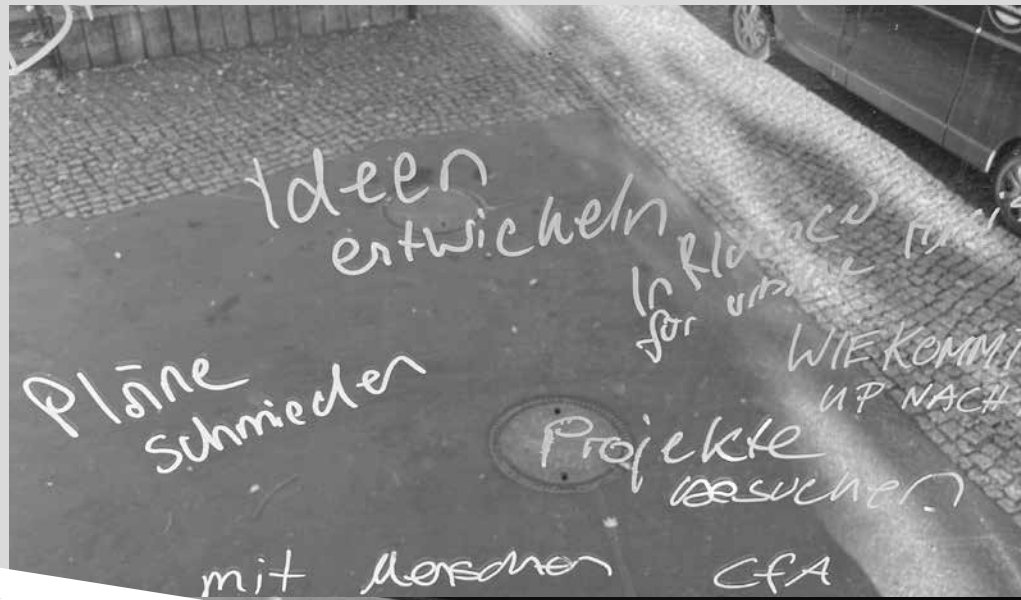 Ideen
entwickeln
für urbane
WIE KOMMT
UP NACH
Pläne
schmieden
Projekte
besuchen
mit Menschen
CfA